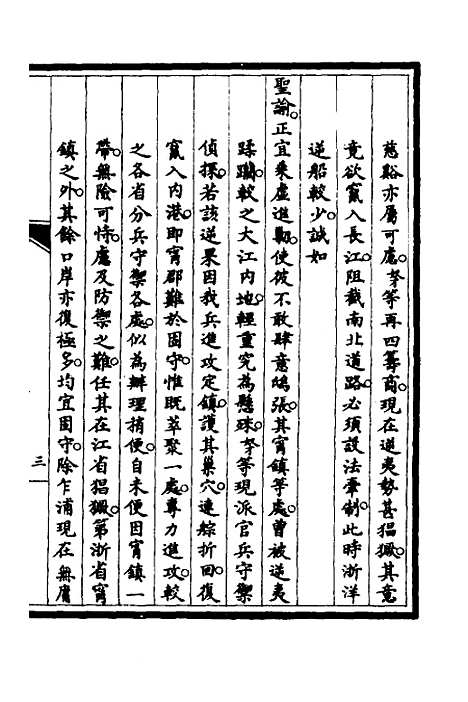 慈谿亦屬可慮。芛等再四籌商。現在逆夷勢甚猖獗。其意
竟欲竄入長江。阻截南北道路。必須設法牽制。此時浙洋
逆船較少。誠如
聖諭。正宜乘虛進勦。使彼不敢肆意鴟張。其甯鎮等處。曾被逆夷
蹂躪。較之大江內地。輕重究為懸殊。芛等現派官兵守禦
偵探。若該逆果因我兵進攻定鎮。護其巢穴。連綜折回。復
竄入內港。即甯郡難於固守。惟既萃聚一處。專力進攻。較
之各省分兵守禦各處。似為辦理稍便。自來便因甯鎮一
帶。無險可恃。處處及防禦之難。任其在江省猖獗。第浙省甯
鎮之外。其餘口岸亦復極多。均宜固守。除乍浦現在無庸
三